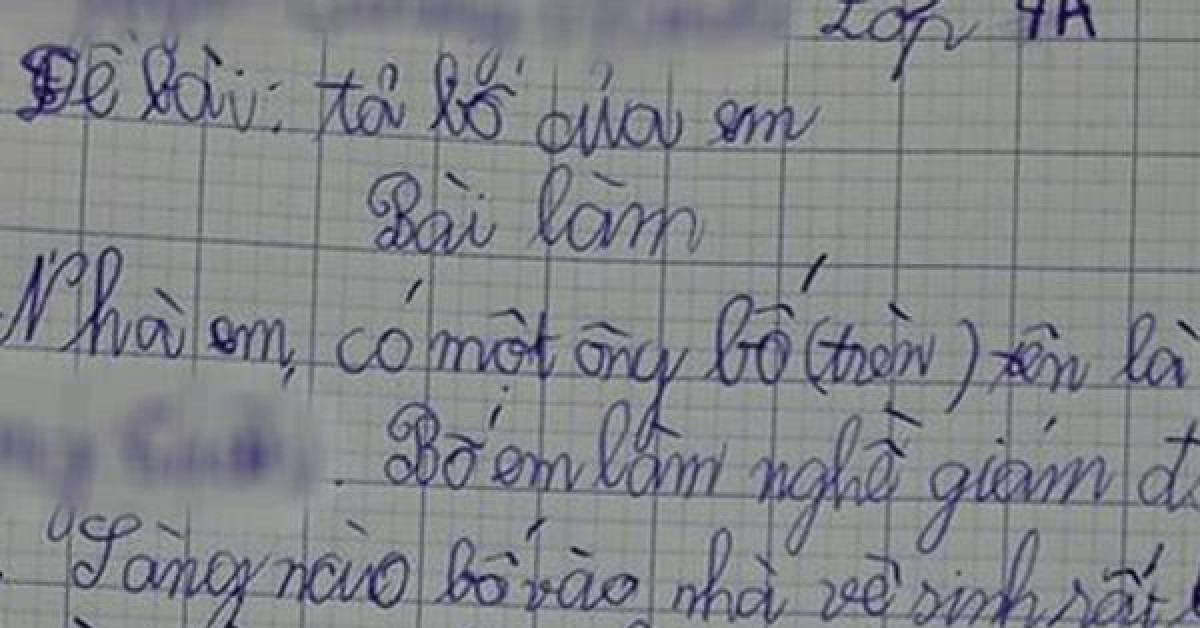 Lớp 4A
Đề bài: tả bố của em
Bài làm
Nhà em, có một ông bố (tròn) tên là
. Bố em làm nghề giám đ
Sàng nào bố vào nhà về sinh rất